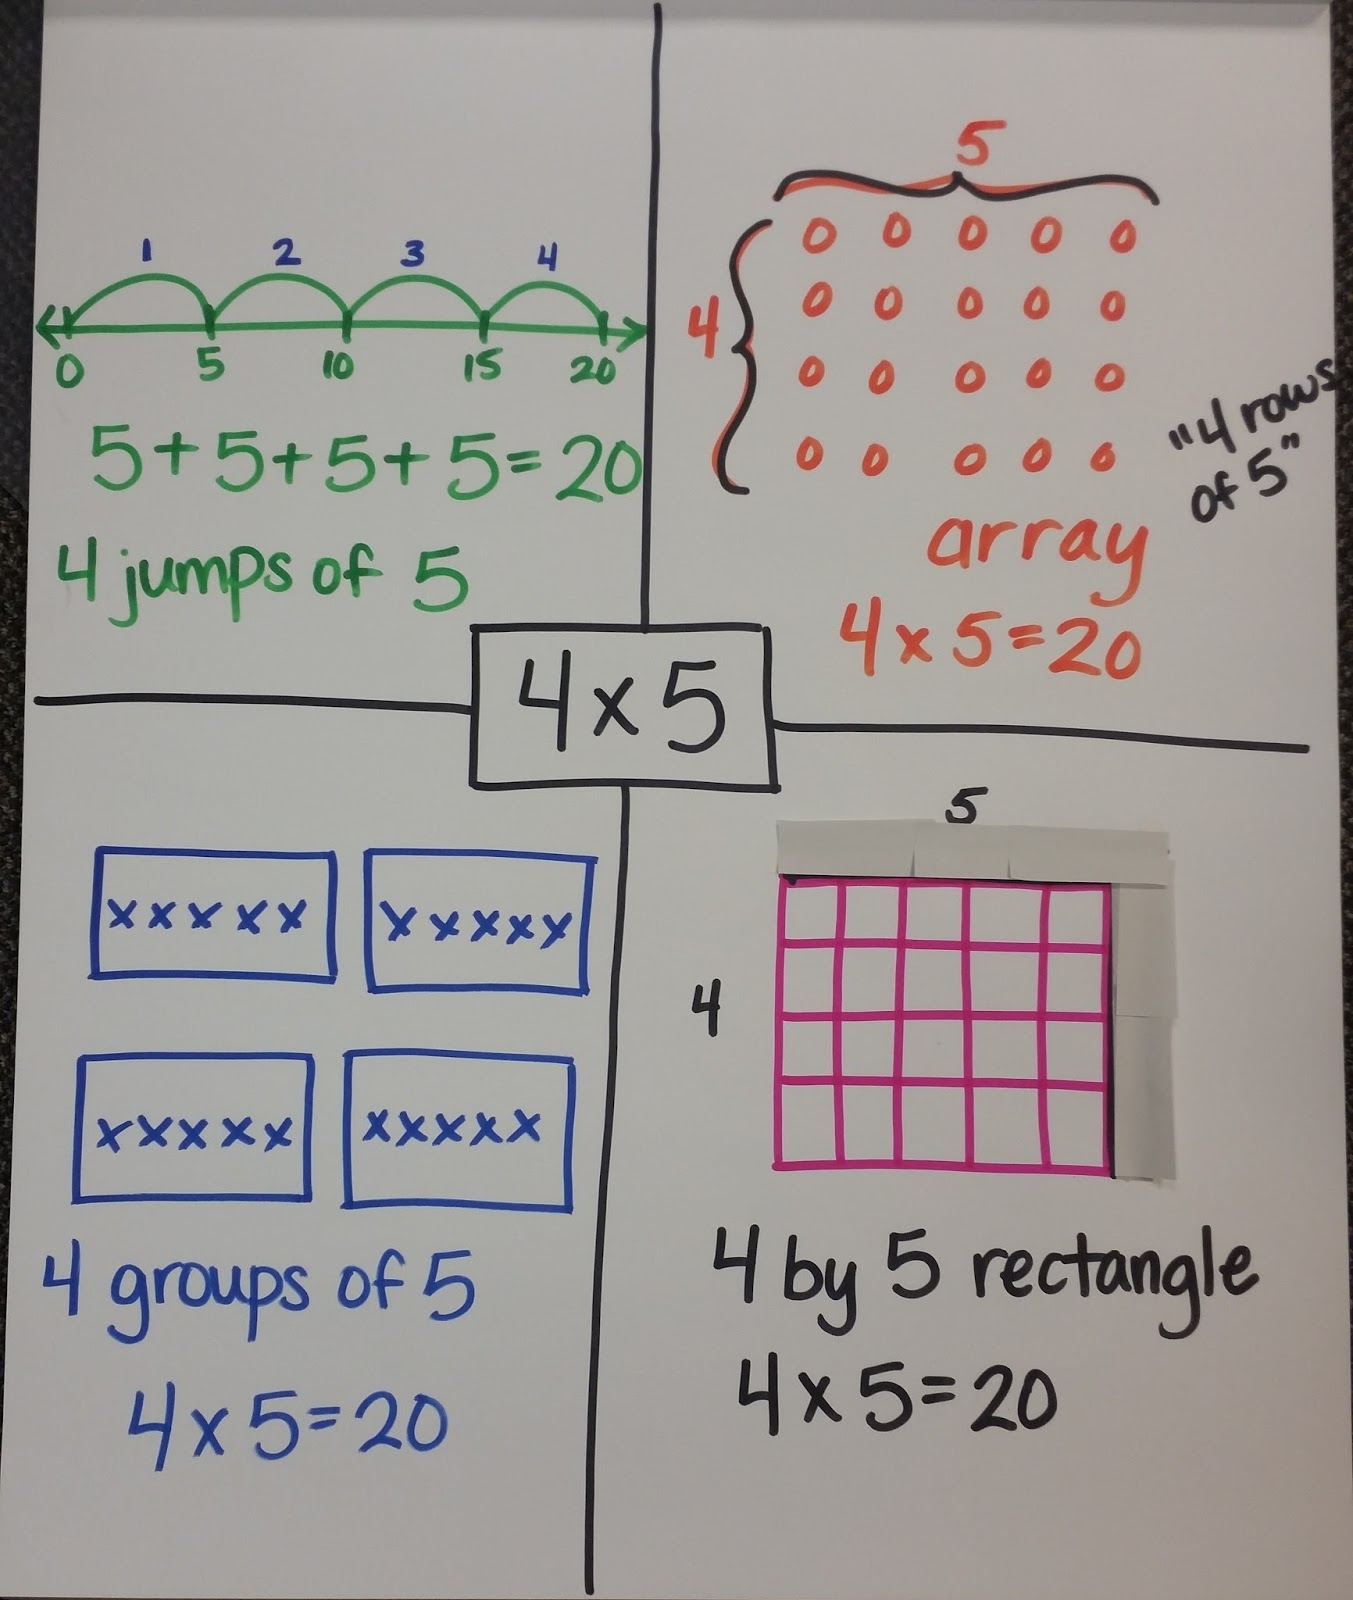 1 2 3 4
0 5 10 15 20
5+5+5+5=20
4 jumps of 5
5
4
0 0 0 0 0
0 0 0 0 0
0 0 0 0 0
0 0 0 0 0
"4 rows
of 5"
array
4x5=20
4x5
xxxxx xxxxx
xxxxx xxxxx
4 groups of 5
4x5=20
5
4
4 by 5 rectangle
4x5=20